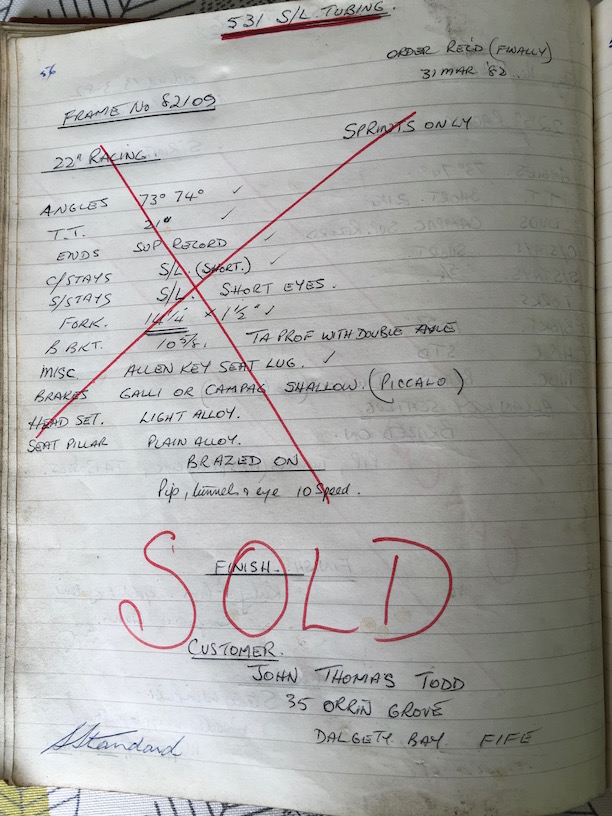 531 S/L TUBING.
56
ORDER REC'D (FINALLY)
31 MAR '82
FRAME No 82109
SPRINTS ONLY
22" RACING.
ANGLES 73° 74° ✓
T.T. 21" ✓
ENDS SUP RECORD ✓
C/STAYS S/L. (SHORT.) ✓
S/STAYS S/L. SHORT EYES.
FORK. 14 1/4 × 1 1/2" ✓
B BKT. 10 5/8. TA PROF WITH DOUBLE AXLE
MISC. ALLEN KEY SEAT LUG. ✓
BRAKES GALLI OR (CAMPAG SHALLOW. (PICCALO)
HEAD SET. LIGHT ALLOY.
SEAT PILLAR PLAIN ALLOY.
BRAZED ON
Pip, tunnels & eye 10 Speed.
SOLD
FINISH.
CUSTOMER.
JOHN THOMAS TODD
35 ORRIN GROVE
DALGETY BAY FIFE
SStandard